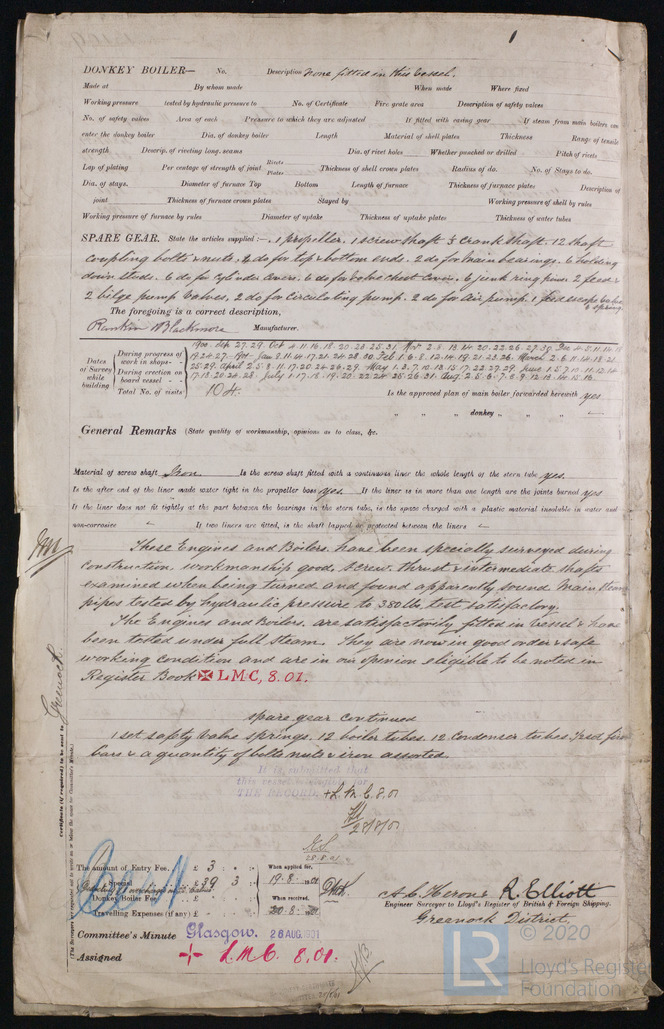 1
DONKEY BOILER— No. Description None fitted in this vessel.
Made at By whom made When made Where fixed
Working pressure tested by hydraulic pressure to No. of Certificate Fire grate area Description of safety valves
No. of safety valves Area of each Pressure to which they are adjusted If fitted with easing gear If steam from main boilers can
enter the donkey boiler Dia. of donkey boiler Length Material of shell plates Thickness Range of tensile
strength Descrip. of riveting long. seams Dia. of rivet holes Whether punched or drilled Pitch of rivets
Lap of plating Per centage of strength of joint Rivets Plates Thickness of shell crown plates Radius of do. No. of Stays to do.
Dia. of stays. Diameter of furnace Top Bottom Length of furnace Thickness of furnace plates Description of
joint Thickness of furnace crown plates Stayed by Working pressure of shell by rules
Working pressure of furnace by rules Diameter of uptake Thickness of uptake plates Thickness of water tubes
SPARE GEAR. State the articles supplied :— 1 propeller. 1 screw shaft ⅓ crank shaft. 12 shaft
coupling bolts & nuts. 4 do for top & bottom ends. 2 do for Main bearings. 6 holding
down studs. 6 do for cylinder covers. 6 do for valve chest cover. 6 junk ring 2 feed &
2 bilge pump valves, 2 do for circulating pump. 2 do for air pump. 1 feed escape valve
& spring.
The foregoing is a correct description,
Rankin & Blackmore Manufacturer.
Dates of Survey while building
During progress of work in shops - -
During erection on board vessel - - -
Total No. of visits 104.
Is the approved plan of main boiler forwarded herewith yes
" " " donkey " " "
General Remarks (State quality of workmanship, opinions as to class, &c.
Material of screw shaft Iron Is the screw shaft fitted with a continuous liner the whole length of the stern tube yes.
Is the after end of the liner made water tight in the propeller boss yes. If the liner is in more than one length are the joints burned yes
If the liner does not fit tightly at the part between the bearings in the stern tube, is the space charged with a plastic material insoluble in water and
non-corrosive If two liners are fitted, is the shaft lapped or protected between the liners
These Engines and Boilers have been specially surveyed during
construction, workmanship good, screw, thrust & intermediate shafts
examined when being turned and found apparently sound. Main Steam
pipes tested by hydraulic pressure to 380 lbs, test satisfactory.
The Engines and Boilers. are satisfactorily fitted in vessel & have
been tested under full steam. They are now in good order & safe
working condition and are in our opinion eligible to be noted in
Register Book ✠ L.M.C, 8.01.
spare gear continued
1 set safety valve springs. 12 boiler tubes. 12 condenser tubes. fire
bars & a quantity of bolts nuts & iron assorted.
It is submitted that
this vessel is eligible for
THE RECORD. + L.M.C. 8.01
28/8/01
28.8.01
Certificate (if required) to be sent to Greenock.
The amount of Entry Fee. . £ 3 : " : When applied for,
Special £ 39 3 19.8.1901
Donkey Boiler Fee . . £ " : " : When received,
Travelling Expenses (if any) £ " : " : 20.8.1901
A. C. Heron & R. Elliott
Engineer Surveyor to Lloyd's Register of British & Foreign Shipping.
Greenock District.
Committee's Minute Glasgow. 28 AUG. 1901
Assigned + L.M.C. 8.01.
© 2020
LR
Lloyd's Register
Foundation